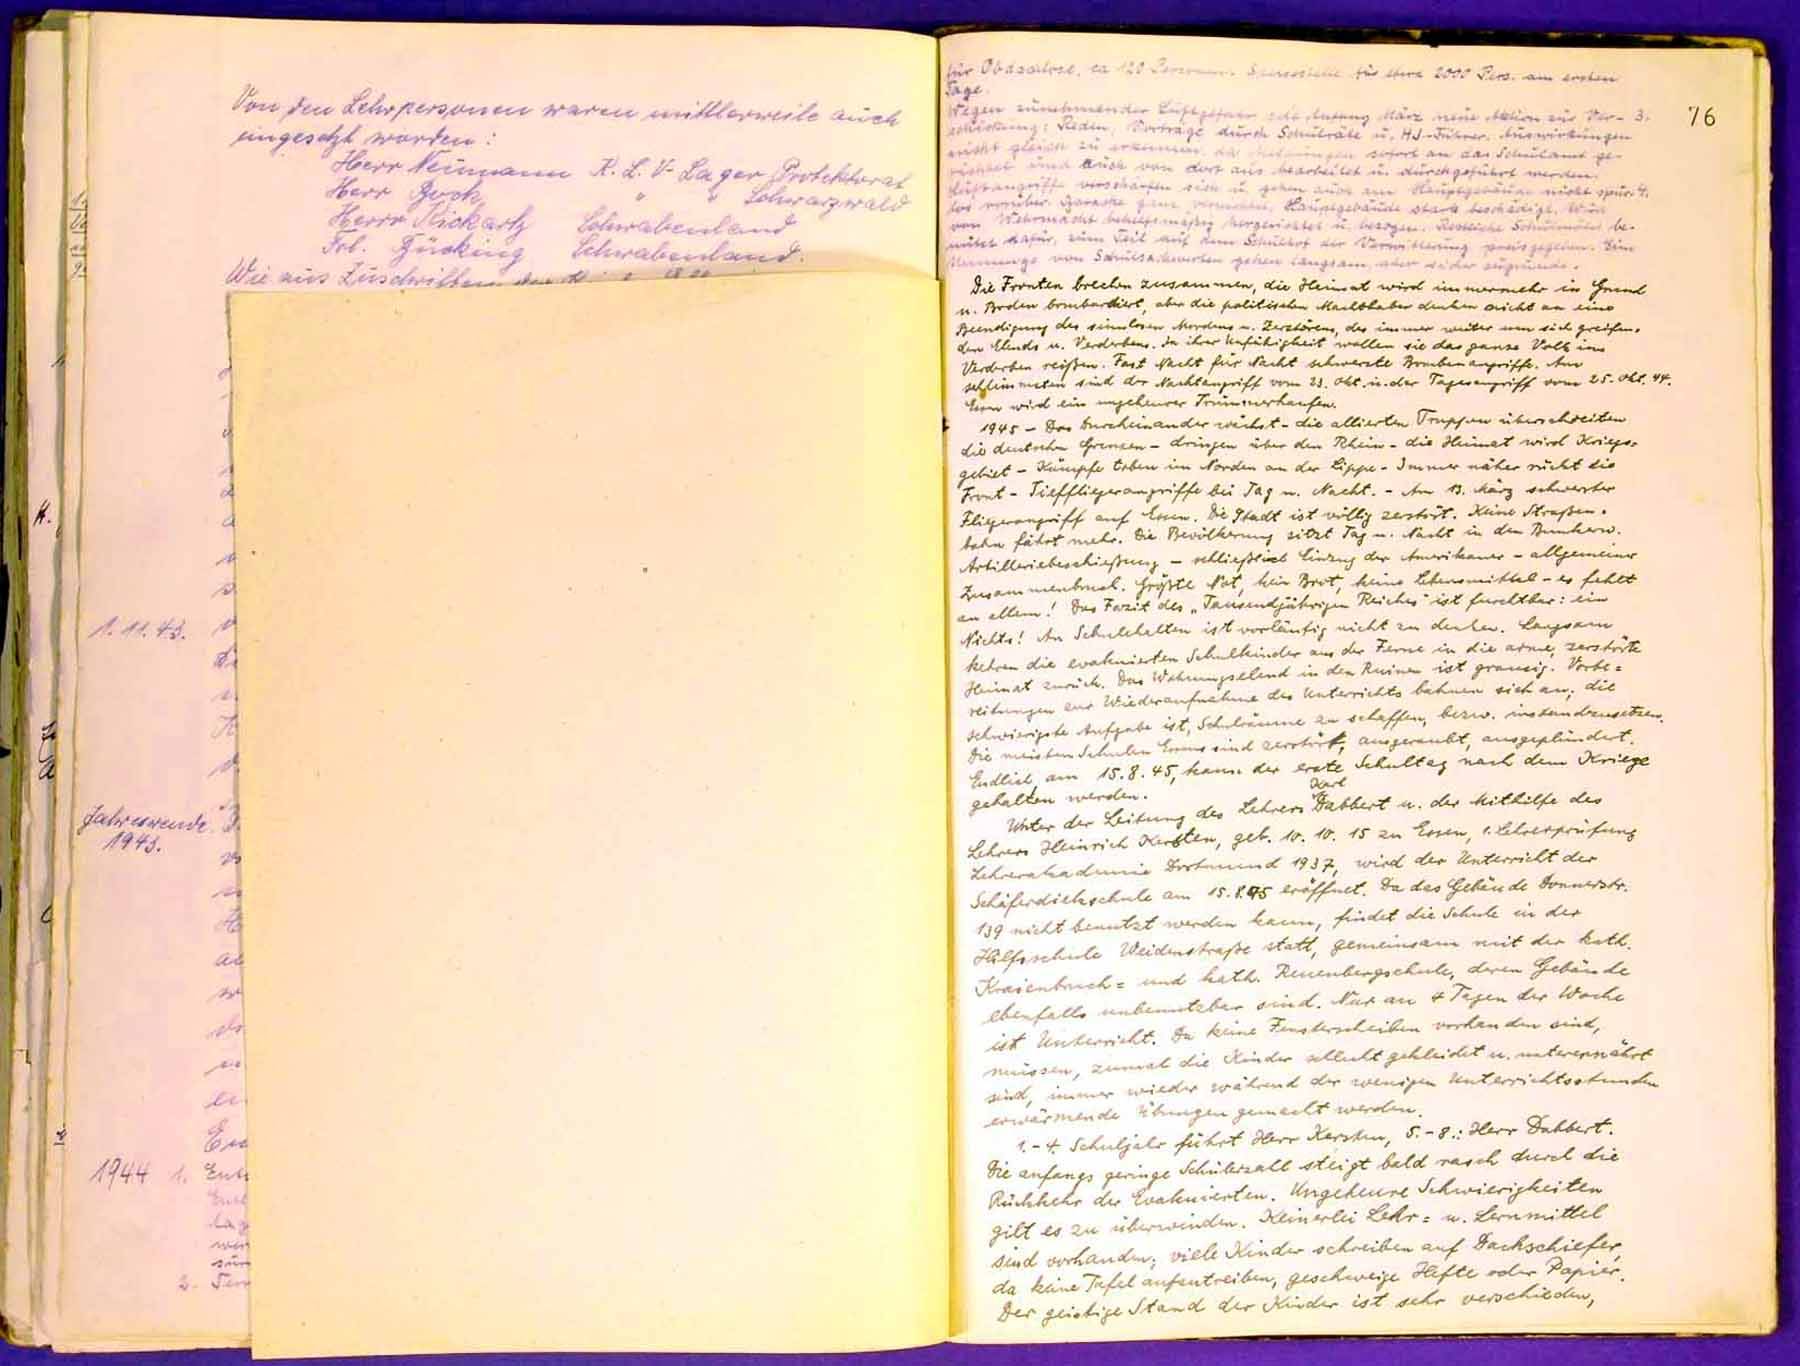 Von den Lehrpersonen waren mittlerweile auch
eingesetzt worden:
Herr Neumann K. L. V. Lager Protektorat
Herr Bock " " Schwarzwald
Herr Rickartz Schwabenland
Frl. Bücking Schwabenland.
Wie aus Zuschriften
1. 11. 43.
Jahreswende
1943.
1944 1.
2.
76
für Obdachlose, ca 120 Personen. Speisestelle für etwa 2000 Pers. am ersten
Tage.
Wegen zunehmender Luftgefahr seit Anfang März neue Aktion zur Ver- 3.
schickung: Reden, Vorträge durch Schulräte u. HJ-Führer. Auswirkungen
nicht gleich zu erkennen, da Meldungen sofort an das Schulamt ge-
richtet und auch von dort aus bearbeitet u. durchgeführt werden.
Luftangriffe verschärfen sich u. gehen auch am Hauptgebäude nicht spur- 4.
los vorüber. Baracke ganz vernichtet, Hauptgebäude stark beschädigt. Wird
von Wehrmacht behelfsmäßig hergerichtet u. bezogen. Restliche Schulmöbel be-
nützt dafür, zum Teil auf dem Schulhof der Verwitterung preisgegeben. Eine
Unmenge von Schulsachwerten gehen langsam, aber sicher zugrunde.
Die Fronten brechen zusammen, die Heimat wird immermehr in Grund
u. Boden bombardiert, aber die politischen Machthaber denken nicht an eine
Beendigung des sinnlosen Mordens u. Zerstörens, des immer weiter um sich greifen-
den Elends u. Verderbens. In ihrer Unfähigkeit wollen sie das ganze Volk ins
Verderben reißen. Fast Nacht für Nacht schwerste Bombenangriffe. Am
schlimmsten sind der Nachtangriff vom 23. Okt. u. der Tagesangriff vom 25. Okt. 44.
Essen wird ein ungeheurer Trümmerhaufen.
1945 – Das Durcheinander wächst – die allierten Truppen überschreiten
die deutschen Grenzen – dringen über den Rhein – die Heimat wird Kriegs-
gebiet – Kämpfe toben im Norden an der Lippe – Immer näher rückt die
Front – Tieffliegerangriffe bei Tag u. Nacht. – Am 13. März schwerster
Fliegerangriff auf Essen. Die Stadt ist völlig zerstört. Keine Straßen-
bahn fährt mehr. Die Bevölkerung sitzt Tag u. Nacht in den Bunkern.
Artilleriebeschießung – schließlich Einzug der Amerikaner – allgemeiner
Zusammenbruch. Größte Not, kein Brot, keine Lebensmittel – es fehlt
an allem! Das Fazit des „Tausendjährigen Reiches" ist furchtbar: ein
Nichts! An Schulehalten ist vorläufig nicht zu denken. Langsam
kehren die evakuierten Schulkinder aus der Ferne in die arme, zerstörte
Heimat zurück. Das Wohnungselend in den Ruinen ist grausig. Vorbe=
reitungen zur Wiederaufnahme des Unterrichts bahnen sich an; die
schwierigste Aufgabe ist, Schulräume zu schaffen, bezw. instandzusetzen.
Die meisten Schulen Essens sind zerstört, ausgeraubt, ausgeplündert.
Endlich, am 15.8.45, kann der erste Schultag nach dem Kriege
gehalten werden.
Karl
Unter der Leitung des Lehrers Dabbert u. der Mithilfe des
Lehrers Heinrich Kersten, geb. 10. 10. 15 zu Essen, 1. Lehrerprüfung
Lehrerakademie Dortmund 1937, wird der Unterricht der
Schäferdiekschule am 15.8.45 eröffnet. Da das Gebäude Donnerstr.
139 nicht benutzt werden kann, findet die Schule in der
Hilfsschule Weidenstraße statt, gemeinsam mit der kath.
Kraienbruch= und kath. Reuenbergschule, deren Gebäude
ebenfalls unbenutzbar sind. Nur an 4 Tagen der Woche
ist Unterricht. Da keine Fensterscheiben vorhanden sind,
müssen, zumal die Kinder schlecht gekleidet u. unterernährt
sind, immer wieder während der wenigen Unterrichtsstunden
erwärmende Übungen gemacht werden.
1.–4. Schuljahr führt Herr Kersten, 5.–8.: Herr Dabbert.
Die anfangs geringe Schülerzahl steigt bald rasch durch die
Rückkehr der Evakuierten. Ungeheure Schwierigkeiten
gilt es zu überwinden. Keinerlei Lehr= u. Lernmittel
sind vorhanden; viele Kinder schreiben auf Dachschiefer,
da keine Tafel aufzutreiben, geschweige Hefte oder Papier.
Der geistige Stand der Kinder ist sehr verschieden,